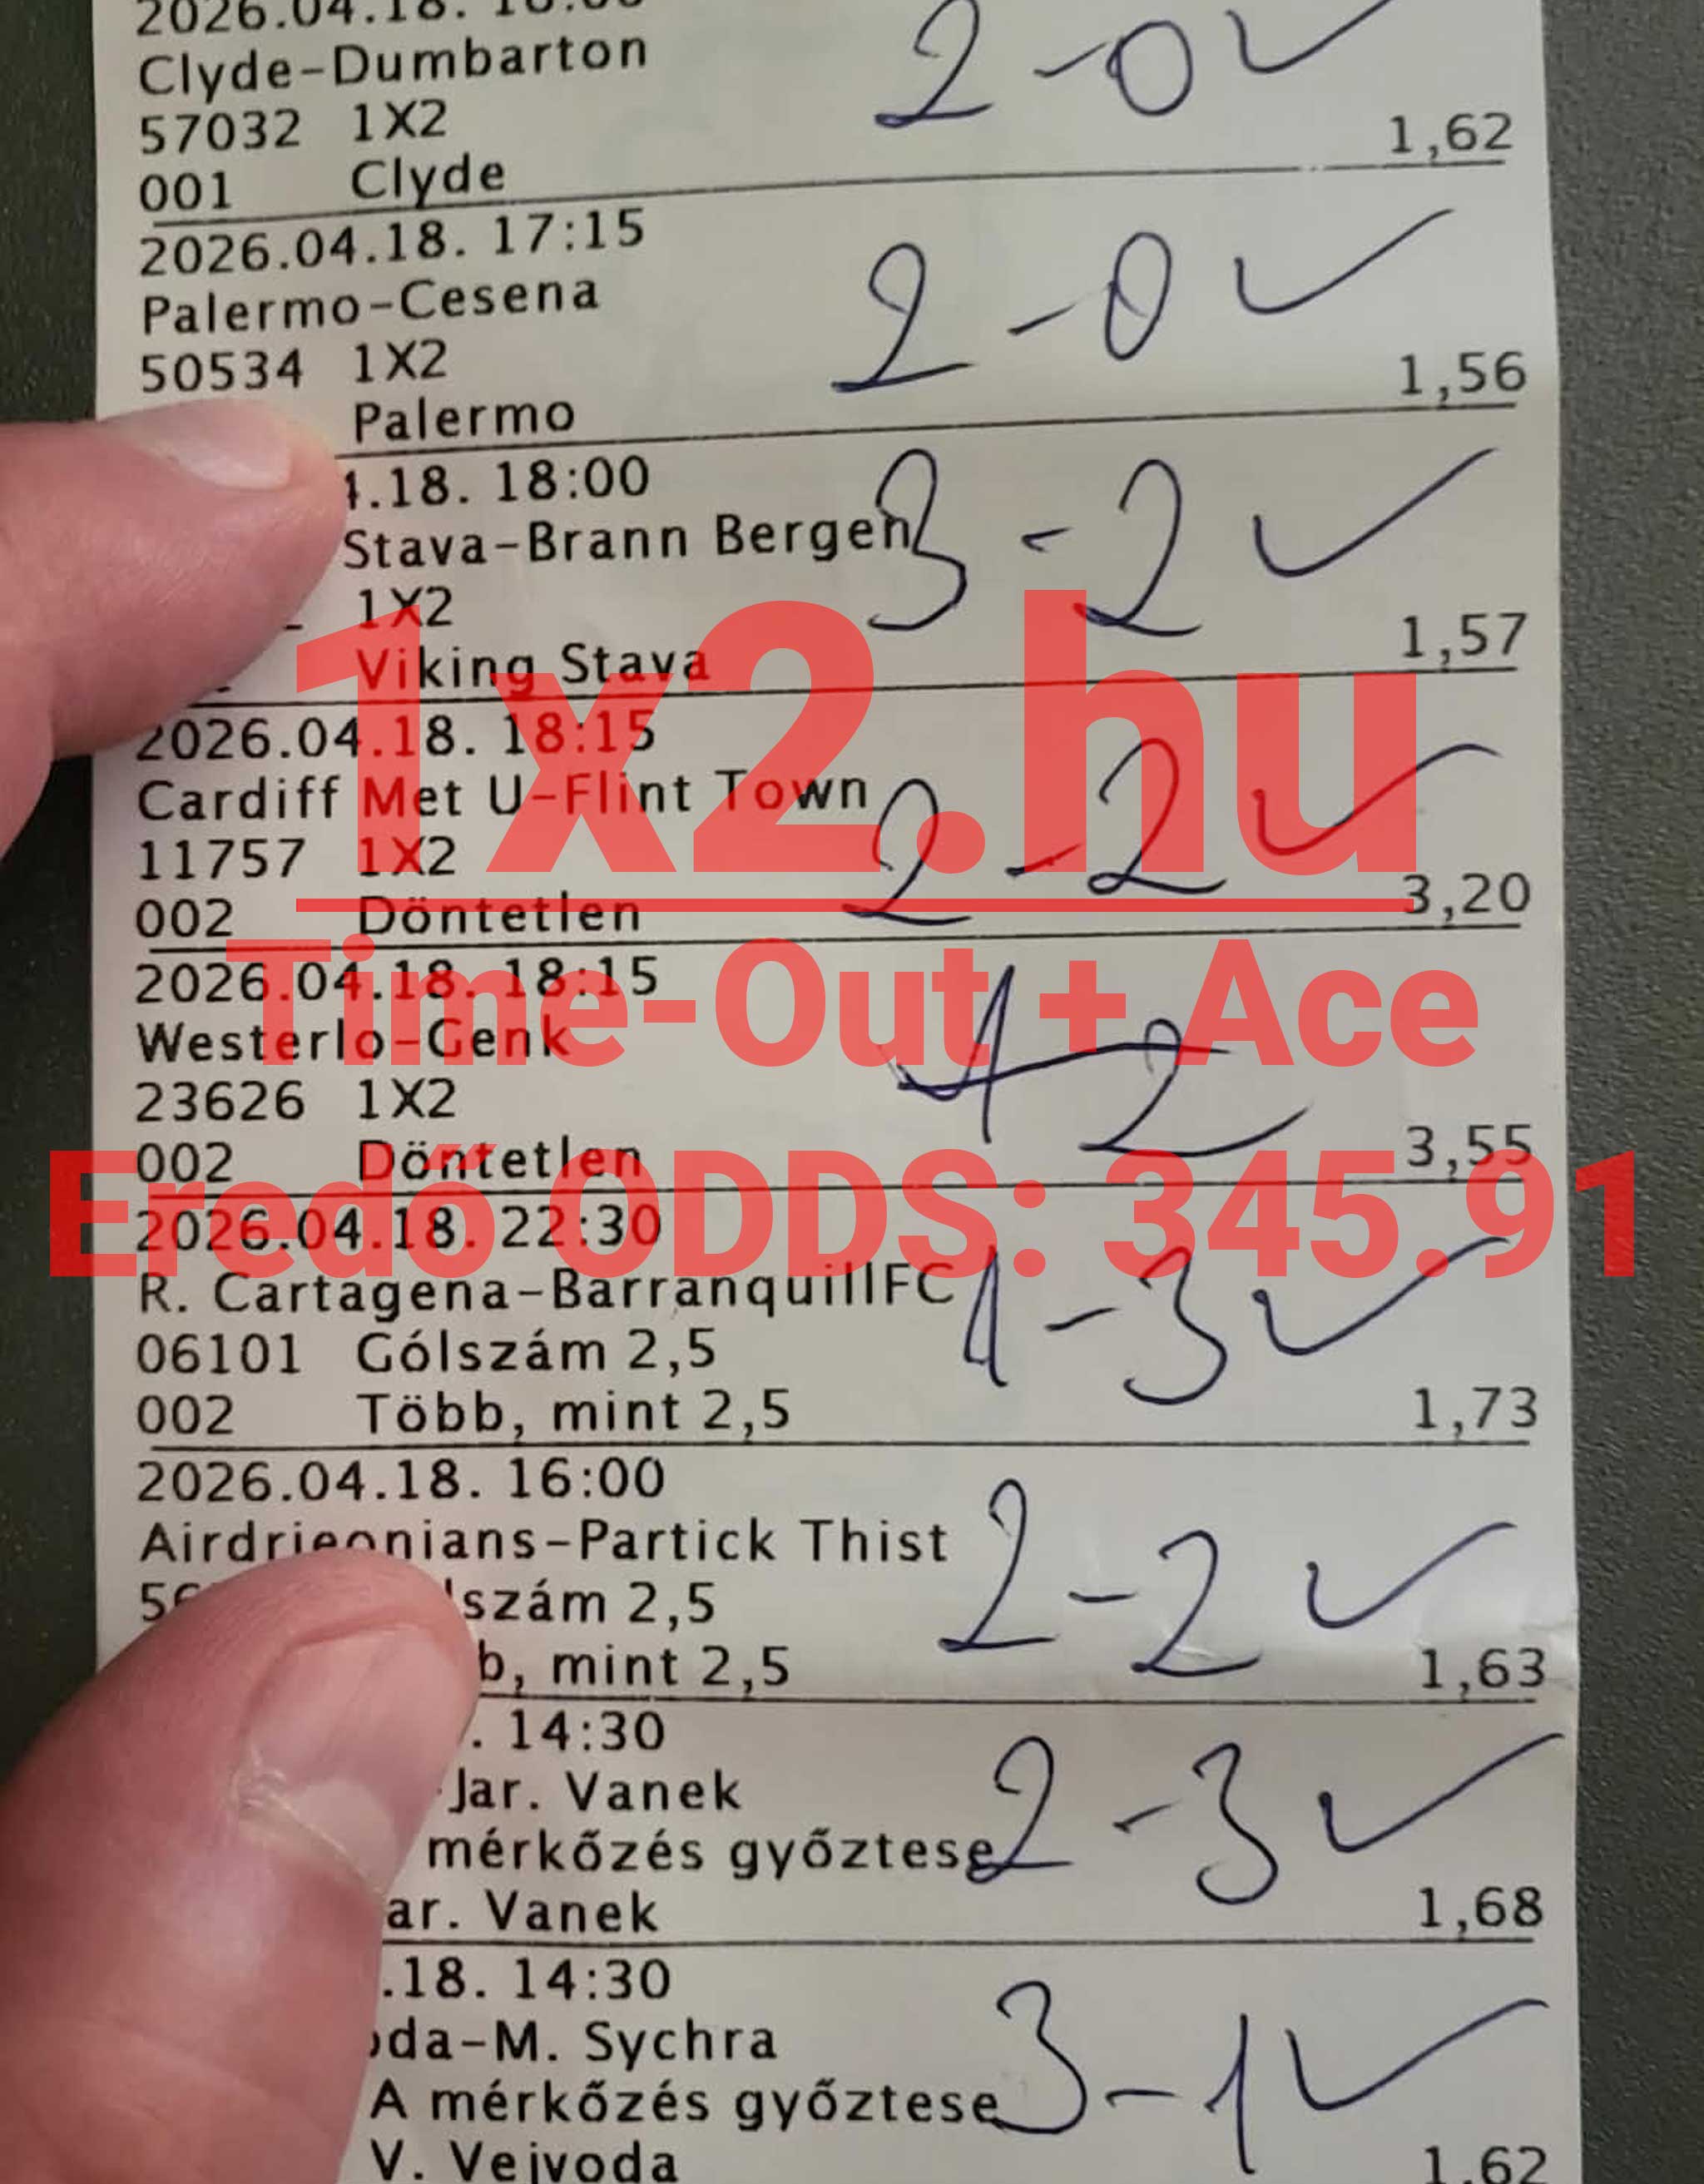 2026.04.18. 16:00
Clyde-Dumbarton
57032 1X2
2-0
1,62
001 Clyde
2026.04.18. 17:15
Palermo-Cesena
2-0
50534 1X2
1,56
Palermo
.18. 18:00
Stava-Brann Bergen
3-2
1X2
1,57
Viking Stava
1x2.hu
2026.04.18. 18:15
Cardiff Met U-Flint Town
2-2
11757 1X2
3,20
002 Döntetlen
Time-Out + Ace
2026.04.18. 18:15
Westerlo-Genk
23626 1X2
3,55
002 Döntetlen
Eredő ODDS: 345.91
2026.04.18. 22:30
R. Cartagena-BarranquillFC
1-3
06101 Gólszám 2,5
002 Több, mint 2,5
1,73
2026.04.18. 16:00
Airdrieonians-Partick Thist
2-2
szám 2,5
b, mint 2,5
1,63
. 14:30
Jar. Vanek
2-3
mérkőzés győztese
ar. Vanek
1,68
.18. 14:30
oda-M. Sychra
3-1
A mérkőzés győztese
V. Vejvoda
1,62